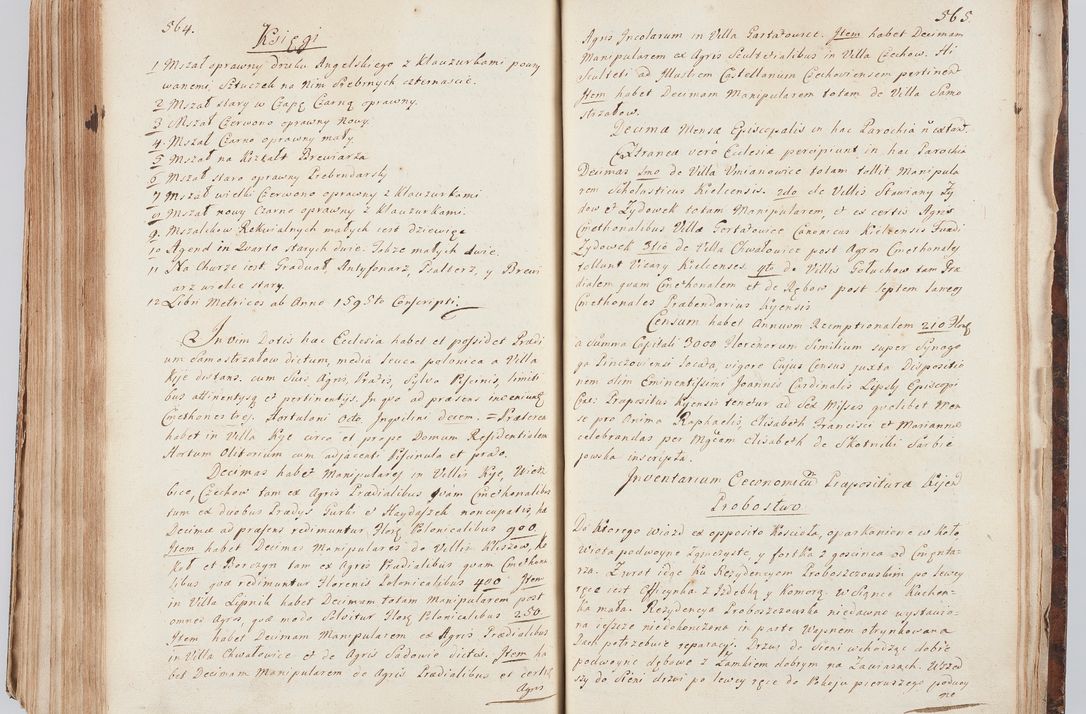 564.
Księgi
1 Mszał oprawny druku Angelskiego z klauzurkami pozły
wanemi, Sztuczek na Nim Srebrnych czternaście.
2 Mszał stary w Czapę Czarną oprawny.
3 Mszał Czerwono oprawny Nowy.
4. Mszał Czarno oprawny mały.
5 Mszał na Kształt Brewiarza
6 Mszał staro oprawny Prebendarsky
7 Mszał wielki Czerwono oprawny z klauzurkami
8 Mszał nowy Czarno oprawny z klauzurkami.
9. Mszalikow Rekwialnych małych iest dziewięć
10 Agend in Quarto starych dwie. Takze małych dwie.
11 Na Churze iest Graduał, Antyfonarz, Psalterz, y Brewi
arz wielce stary.
12 Libri Metrices ab Anno 1595to Conscripti.
In vim Dotis hac Ecclesia habet et possidet Prædi
um Samostrzałow dictum, media leuca polonica a Villa
Kije distans. cum Suis Agris, Pratis, Sylva Piscinis, limiti
bus attinentysq et pertinentijs. In quo ad præsens inveniunt
Cmethones trej. Hortulani Octo. Inquilini decem. = Præterea
habet in Villa Kye circa et prope Domum Residentialem
Hortum Olitorium cum adjacenti Piscinula et prato.
Decimas habet Manipularej in Villis Kije, Wierz
bice, Czechow tam ex Agris Prædialibus quam Cmethonalibus
tum ex duobus Prædys Gurki et Haydaszek noncupatis, hæ
Decimæ ad præsens redimuntur Flor. Polonicalibus 900.
Item habet Decimas Manipulares de Villis Kliszow, Ko
kot et Borczyn tam ex Agris Prædialibus quam Cmethona
libus quæ redimuntur Florenis Polonicalibus 400 Item
in Villa Lipnik habet Decimam totam Manipularem post
omnes Agros, quæ modo Solvitur Flor. Polonicalibus 250.
Item habet Decimam Manipularem ex Agris Prædialibus
in Villa Chwałowice et de Agris Sadowie dictis. Item ha
bet Decimam Manipularem de Agris Prædialibus et certis
Agris
565.
Agris Incolarum in Villa Gartatowice. Item habet Decimam
Manipularem ex Agris Scultetialibus in Villa Czechow. Hi
Sculteti ad Illustrem Castellanum Czechoviensem pertinent
Item habet Decimam Manipularem totam de Villa Samo
strzałow.
Decimæ Mensæ Episcopalis in hac Parochia ñ extant.
Extraneæ verò Ecclesiæ percipiunt in hac Parochia
Decimas 1mo de Villa Umianowice totam tollit Manipula
rem Scholasticus Kielcensis. 2do de Villis Stawiany Zy
dow et Zydowek totam Manipularem, et ex certis Agris
Cmethonalibus Villæ Gartatowice Canonicus Kielcensis Fundi
Zydowek 3tio de Villa Chwałowice post Agros Cmethonales
tollunt Vicarij Kielcenses. 4to de Villis Gołuchow tam Præ
dialem quam Cmethonalem et de Rębow post septem laneos
Cmethonales Præbendarius Kyensis
Censum habet Annuum Reemptionalem 210 Flor
a summa Capitali 3000 Florenorum Similium super Synago
ga Pinczoviensi locata, vigore Cujus Census juxta Dispositio
nem olim Eminentissimi Joannis Cardinalis Lipsky Episcopi
Crac: Præpositus Kyensis tenetur ad Sex Missas quolibet Men
se pro Anima Raphaelis, Elisabeth Francisci et Mariannæ
celebrandas per Mgcam Elisabeth de Skotniki Sarbie
jowska inscripta.
Inventarium Œconomicũ Præposituræ Kijen
Probostwo
Do Ktorego wiazd ex opposito Kościoła, oparkaniene w Koło,
wrota podwoyne zguczyste, y fortka z gościnca od Cmęnta-
rza. Z wrot idąc ku Rezydencyom Proboszczowskim po lewey
ręce iest Officynka z Izdebką y Komorą. W Sięnce Kuchen-
ka mała. Rezydencya Proboszczowska niedawno wystawio-
na ieszcze niedokończona in parte Wapnem otynkowana
Dach potrzebuie reparacyi. Drzwi do Sieni wchodząc dobre
podwoyne dębowe z Zamkiem dobrym na Zawiasach. Wszed
szy do Sieni drzwi po lewey ręce do Pokoju pierwszego podwoy
ne